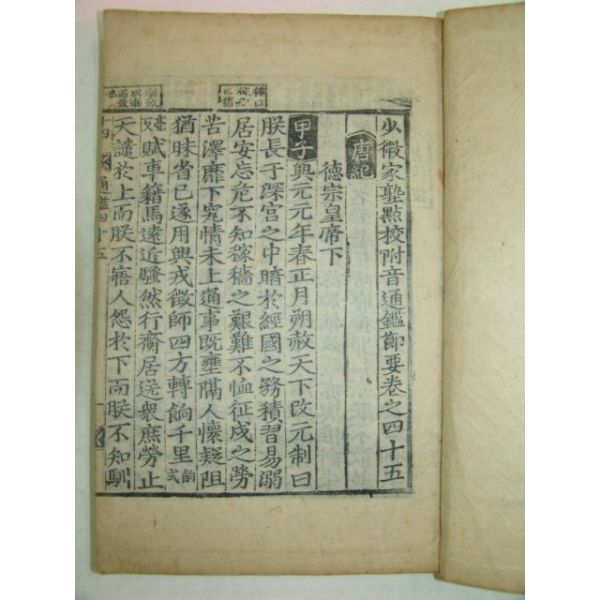 少微家塾點校附音通鑑節要卷之四十五
唐紀
德宗皇帝下
甲子興元元年春正月朔赦天下改元制曰
朕長于深宮之中暗於經國之務積習易溺
居安忘危不知稼穡之艱難不恤征戍之勞
苦澤靡下究情未上通事既壅隔人懷疑阻
猶昧省已遂用興戎徵師四方轉餉千里餉式
賦車籍馬遠近騷然行齎居送衆庶勞止
天譴於上而朕不寤人怨於下而朕不知馴
通鑑四十五